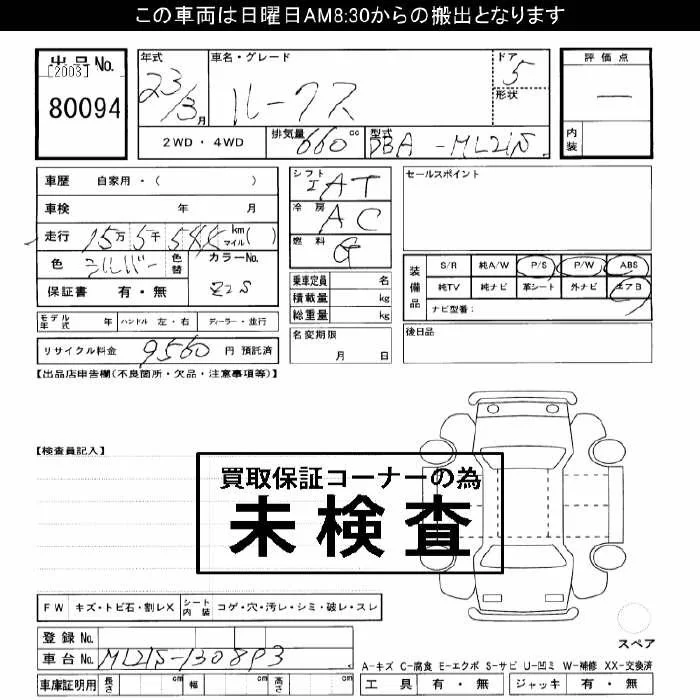 この車両は日曜日AM8:30からの搬出となります
出品No.
[2003]
80094
年式
23/3月
車名・グレード
ルークス
ドア
5
形状
2WD・4WD
排気量 660 cc
型式 DBA-ML21S
評価点
一
内装
車歴 自家用・( )
車検 年 月
走行 15万 5千 5
km
マイル ( )
色 シルバー
色替
カラーNo.
Z2S
保証書 有・無
シフト
AT
冷房
AC
燃料
G
セールスポイント
装備品
S/R 純A/W P/S P/W ABS
純TV 純ナビ 革シート 外ナビ エアB
ナビ型番:
モデル年式 年 ハンドル 左・右 ディーラー・並行
乗車定員 名
積載量 kg
総重量 kg
後日品
リサイクル料金 9560 円 預託済
名変期限
月 日
【出品店申告欄(不良箇所・欠品・注意事項等)】
【検査員記入】
買取保証コーナーの為
未検査
FW キズ・トビ石・割レX シート内装 コゲ・穴・汚レ・シミ・破レ・スレ
スペア
登録No.
車台No. ML21S-130893
A-キズ C-腐食 E-エクボ S-サビ U-凹ミ W-補修 XX-交換済
車庫証明用 長さ cm 幅 cm 高さ cm
工具 有・無 ジャッキ 有・無